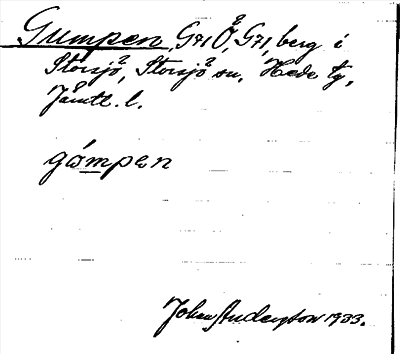 Gumpen, G71 Ö, G71, berg i
Storsjö, Storsjö sn, Hede tg,
Jämtl. l.
gåmpen
Johan Anderson 1933.